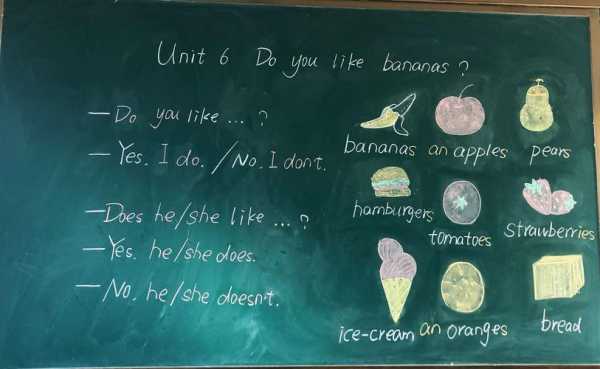 Unit 6 Do you like bananas?
—Do you like ... ?
—Yes. I do. / No. I don't.
—Does he/she like ... ?
—Yes. he/she does.
—No. he/she doesn't.
bananas an apples pears
hamburgers tomatoes strawberries
ice-cream an oranges bread